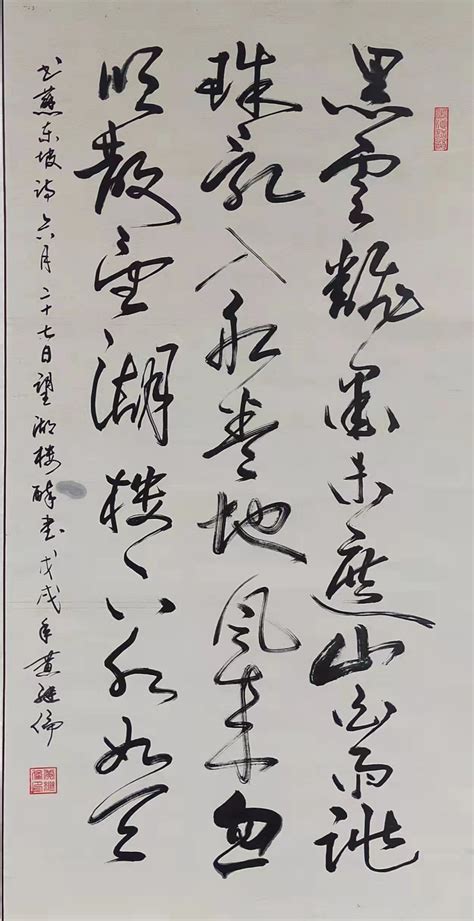 黑雲翻墨未遮山白雨跳
珠乱入船卷地風来忽
吹散望湖楼下水如天
书蘇东坡诗六月二十七日望湖楼醉书戊戌年